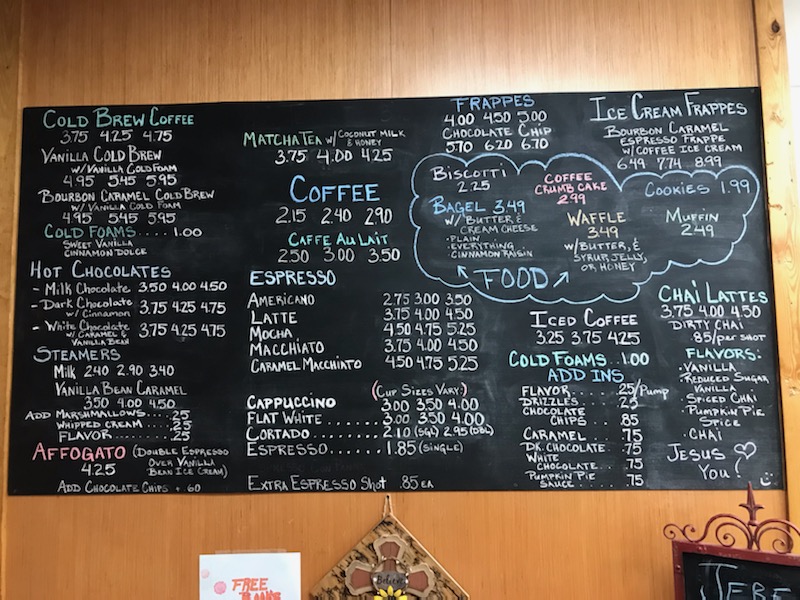 COLD BREW COFFEE
3.75 4.25 4.75
VANILLA COLD BREW
W/ VANILLA COLD FOAM
4.95 5.45 5.95
BOURBON CARAMEL COLD BREW
W/ VANILLA COLD FOAM
4.95 5.45 5.95
COLD FOAMS.....1.00
SWEET VANILLA
CINNAMON DOLCE
HOT CHOCOLATES
- MILK CHOCOLATE 3.50 4.00 4.50
- DARK CHOCOLATE 3.75 4.25 4.75
W/ CINNAMON
- WHITE CHOCOLATE 3.75 4.25 4.75
W/ CARAMEL &
VANILLA BEAN
STEAMERS
MILK 2.40 2.90 3.40
VANILLA BEAN CARAMEL
3.50 4.00 4.50
ADD MARSHMALLOWS.....25
WHIPPED CREAM.....25
FLAVOR.....25
AFFOGATO (DOUBLE ESPRESSO
4.25 OVER VANILLA
BEAN ICE CREAM)
ADD CHOCOLATE CHIPS + 60
MATCHA TEA W/ COCONUT MILK
& HONEY
3.75 4.00 4.25
COFFEE
2.15 2.40 2.90
CAFFE AU LAIT
2.50 3.00 3.50
ESPRESSO
AMERICANO 2.75 3.00 3.50
LATTE 3.75 4.00 4.50
MOCHA 4.50 4.75 5.25
MACCHIATO 3.75 4.00 4.50
CARAMEL MACCHIATO 4.50 4.75 5.25
(CUP SIZES VARY:)
CAPPUCCINO 3.00 3.50 4.00
FLAT WHITE..... 3.00 3.50 4.00
CORTADO....... 2.10 (SGL) 2.95 (DBL)
ESPRESSO....... 1.85 (SINGLE)
EXTRA ESPRESSO SHOT .85 EA
FRAPPES
4.00 4.50 5.00
CHOCOLATE CHIP
5.70 6.20 6.70
ICE CREAM FRAPPES
BOURBON CARAMEL
ESPRESSO FRAPPE
W/ COFFEE ICE CREAM
6.49 7.74 8.99
BISCOTTI
2.25
COFFEE
CRUMB CAKE
2.99
COOKIES 1.99
BAGEL 3.49
W/ BUTTER &
CREAM CHEESE
· PLAIN
· EVERYTHING
· CINNAMON RAISIN
WAFFLE
3.49
W/ BUTTER, &
SYRUP, JELLY,
OR HONEY
MUFFIN
2.49
FOOD
ICED COFFEE
3.25 3.75 4.25
COLD FOAMS ..1.00
ADD INS
FLAVOR.....25/PUMP
DRIZZLES.....25
CHOCOLATE
CHIPS .85
CARAMEL .75
DK. CHOCOLATE .75
WHITE
CHOCOLATE.... .75
PUMPKIN PIE
SAUCE..... .75
CHAI LATTES
3.75 4.00 4.50
DIRTY CHAI
.85/PER SHOT
FLAVORS:
· VANILLA
· REDUCED SUGAR
VANILLA
· SPICED CHAI
· PUMPKIN PIE
SPICE
· CHAI
JESUS
YOU!
FREE
Believe
JEBE